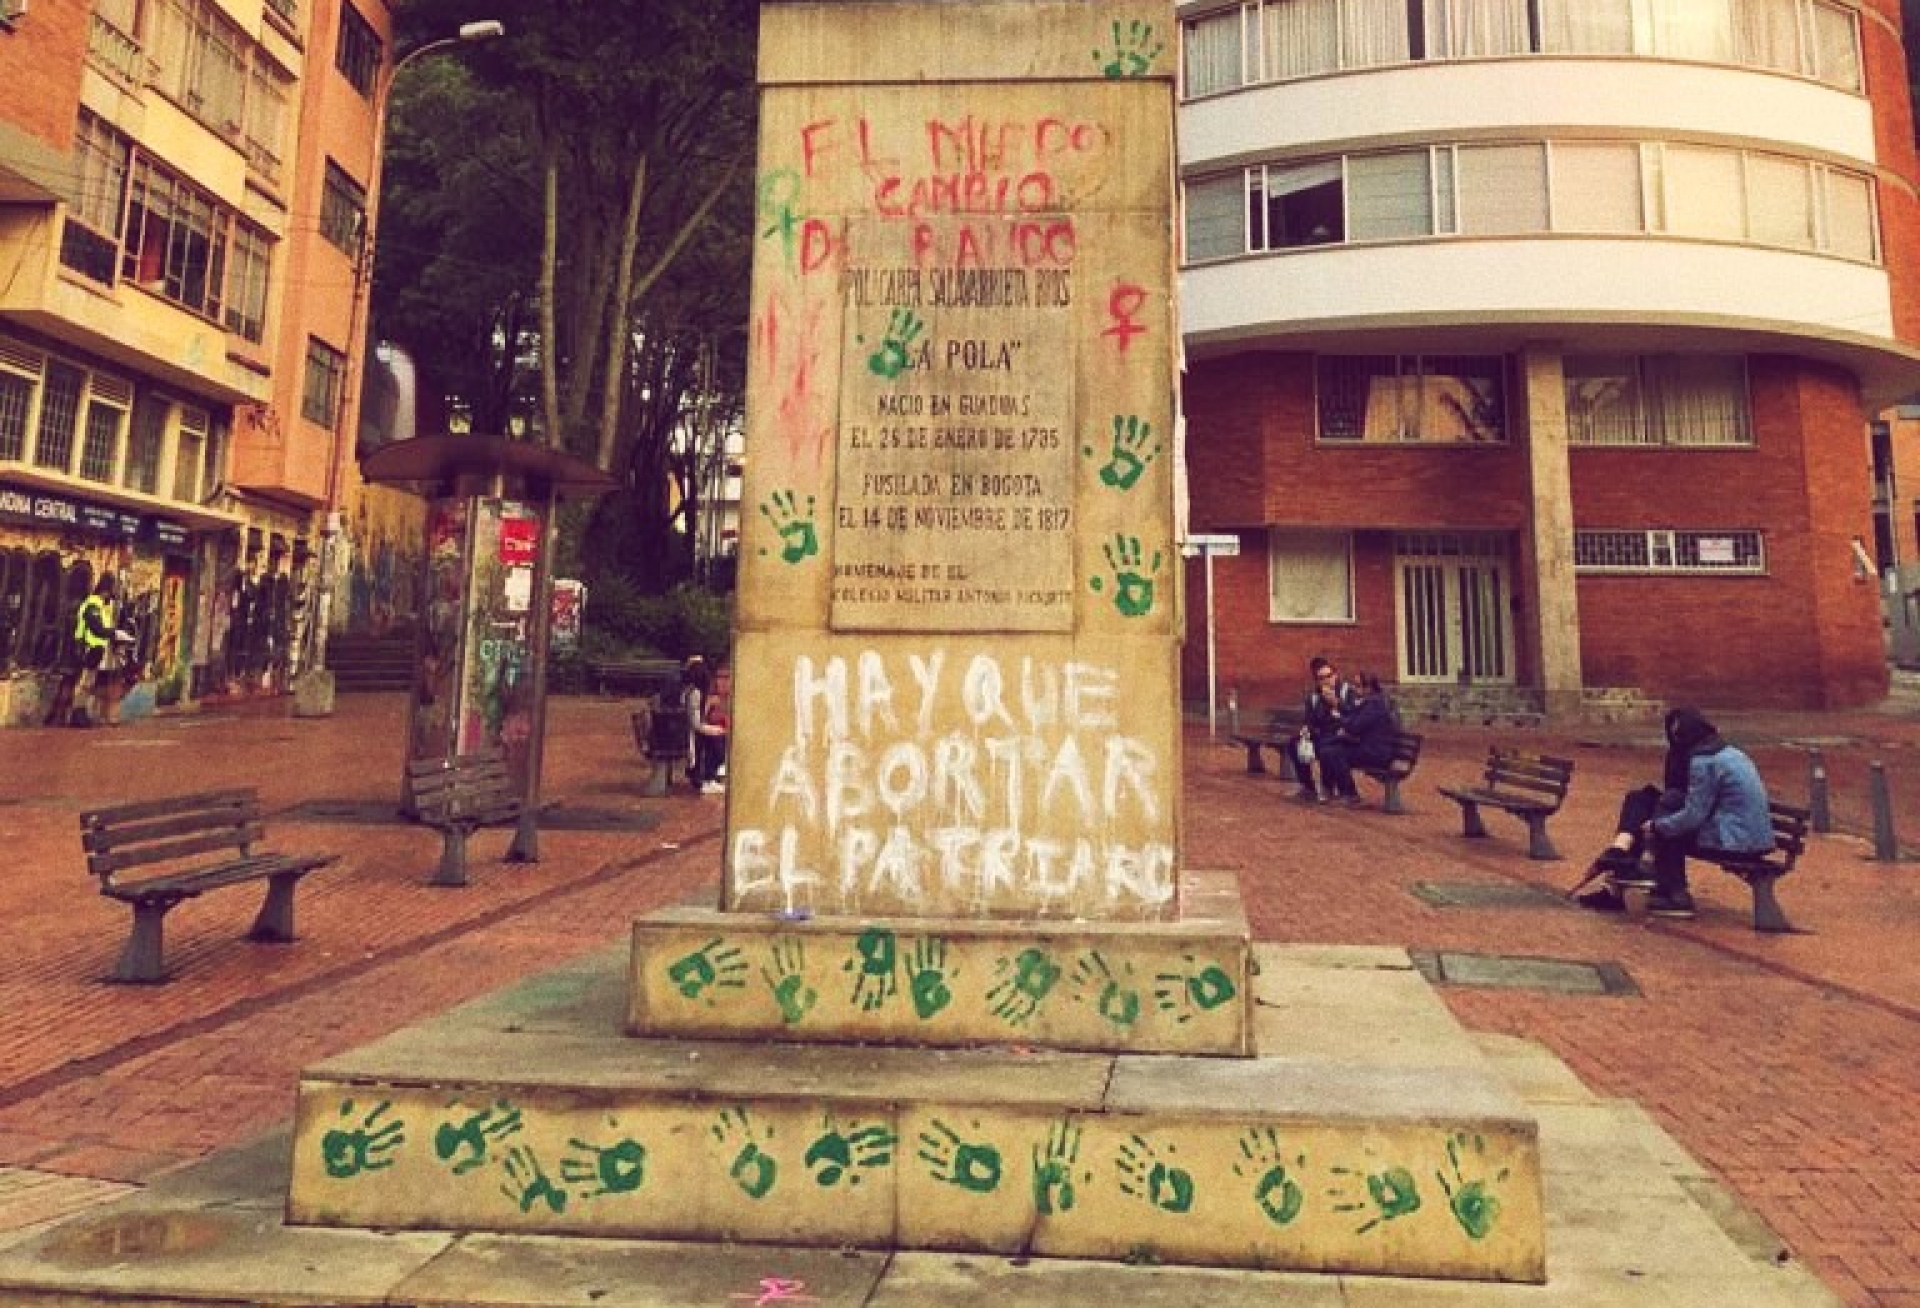 EL MIEDO
CAMBIO
DE BANDO
POLICARPA SALAVARRIETA RIOS
"LA POLA"
NACIO EN GUADUAS
EL 26 DE ENERO DE 1795
FUSILADA EN BOGOTA
EL 14 DE NOVIEMBRE DE 1817
HOMENAJE DE EL
COLEGIO MILITAR ANTONIO RICAURTE
HAY QUE
ABORTAR
EL PATRIARC
CENTRAL